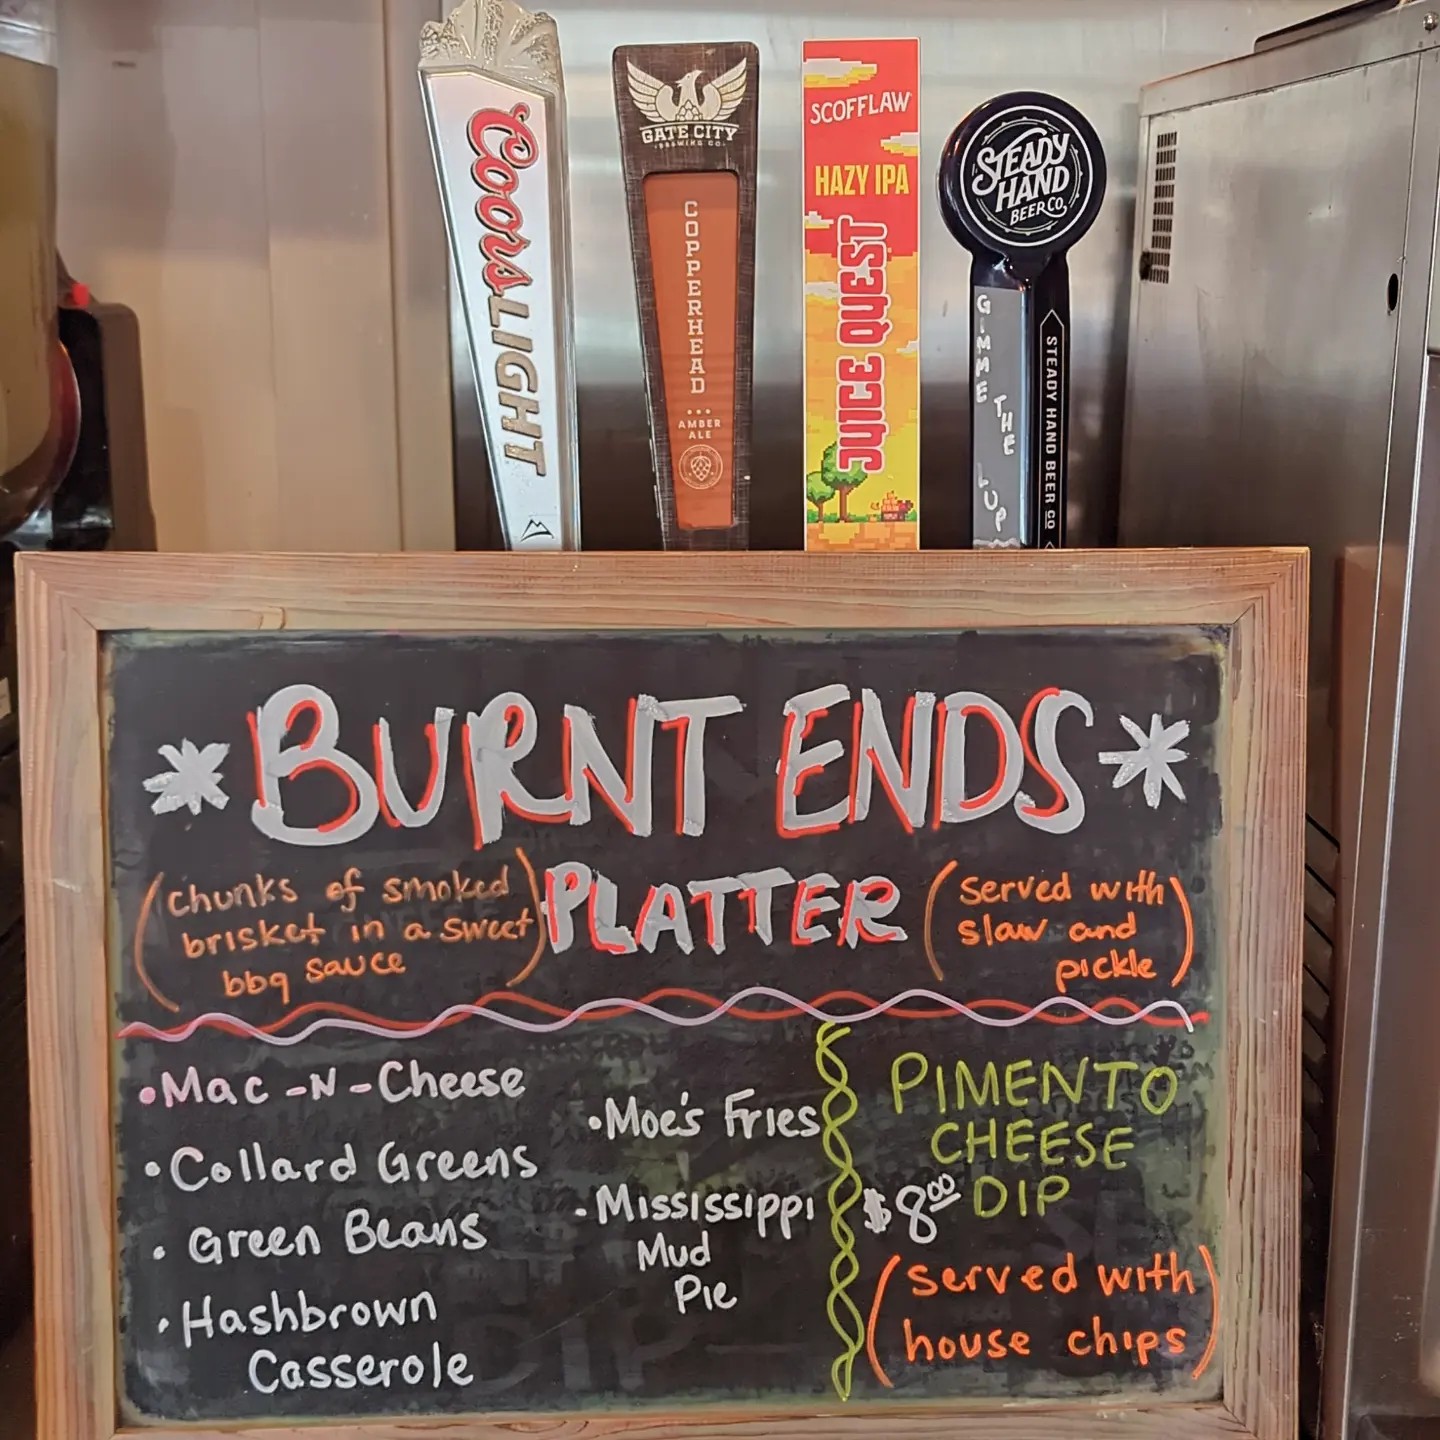 Coors LIGHT
GATE CITY
BREWING CO.
COPPERHEAD
AMBER
ALE
SCOFFLAW
HAZY IPA
JUICE QUEST
STEADY
HAND
BEER CO.
GIMME
THE
LUP
STEADY HAND BEER CO
*BURNT ENDS*
PLATTER
(chunks of smoked
brisket in a sweet
bbq sauce)
(served with
slaw and
pickle)
•Mac-N-Cheese
•Collard Greens
•Green Beans
•Hashbrown
Casserole
•Moe's Fries
•Mississippi
Mud
Pie
PIMENTO
CHEESE
$8.00 DIP
(served with
house chips)